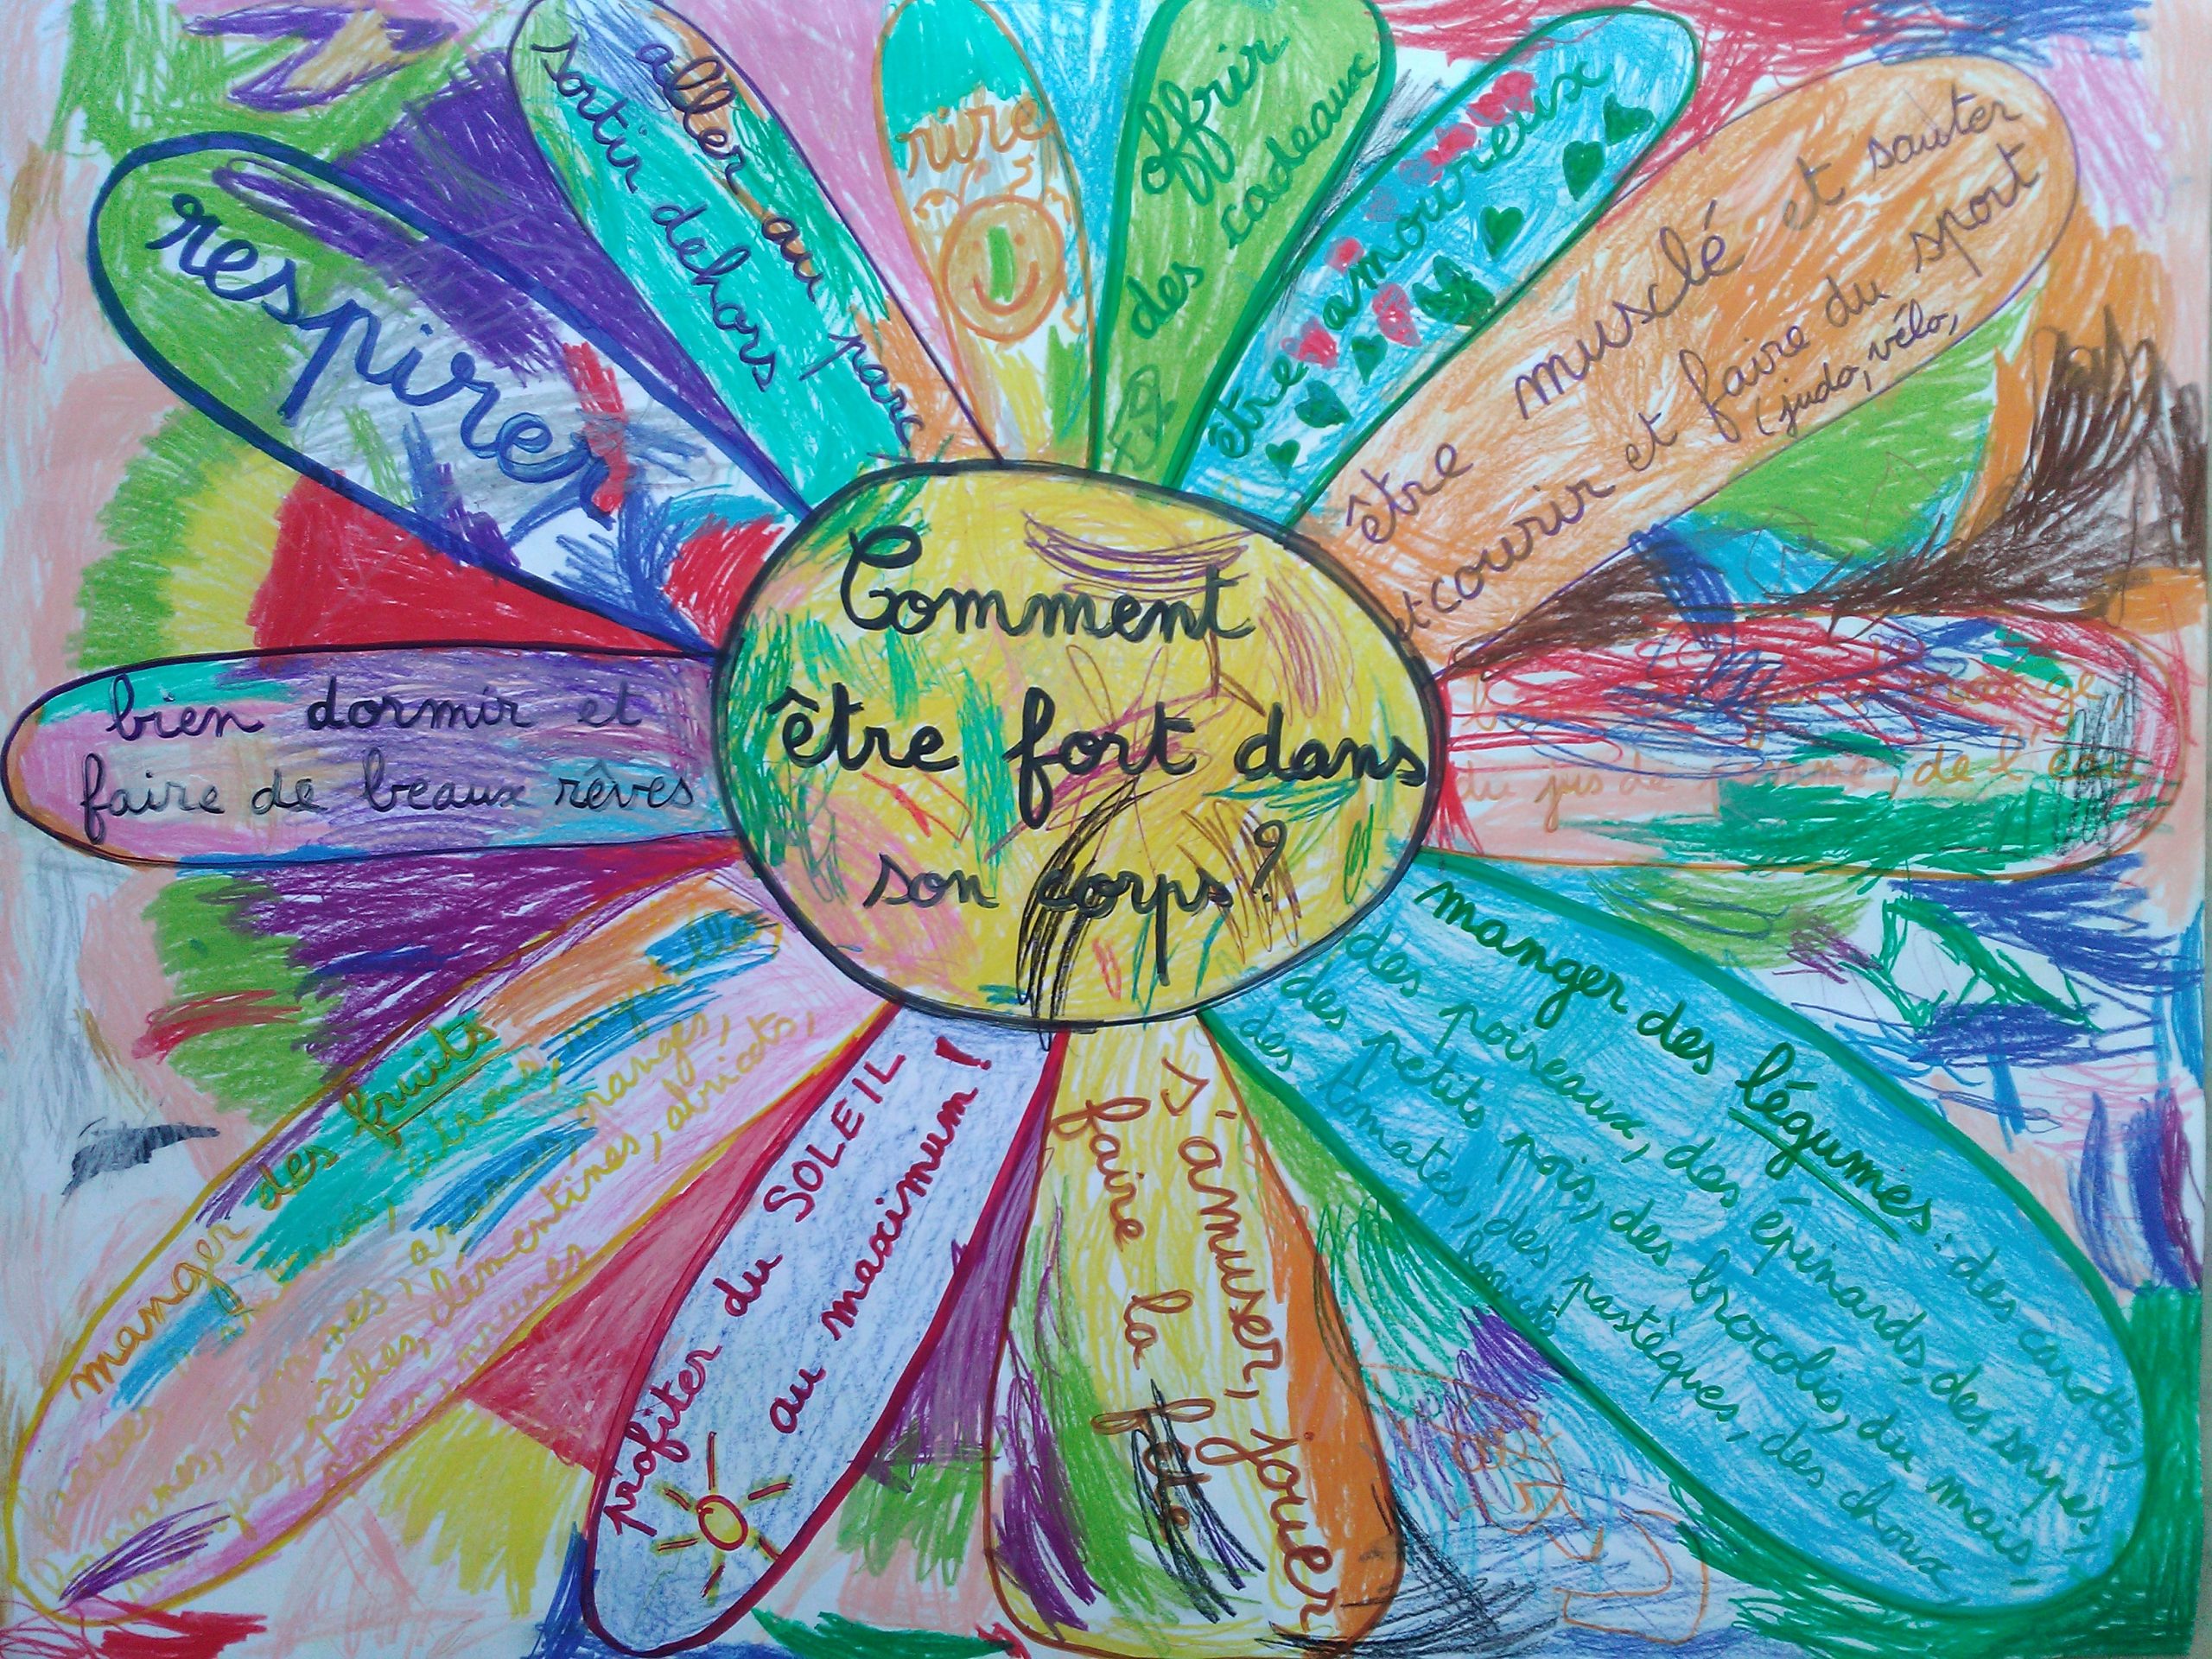 Comment
être fort dans
son corps?
respirer
sortir dehors
aller au parc
rire
offrir
des cadeaux
être amoureux
être musclé et sauter
et courir et faire du sport
(judo, vélo,
du jus de de l'eau
manger des légumes : des carottes,
des poireaux, des épinards, des soupes,
des petits pois, des brocolis, du maïs,
des tomates, des pastèques, des choux,
haricots
s'amuser, jouer
faire la fête
profiter du SOLEIL
au maximum!
manger des fruits
citrons,
pommes, ananas, oranges,
pêches, clémentines, abricots,
poires, prunes
bien dormir et
faire de beaux rêves